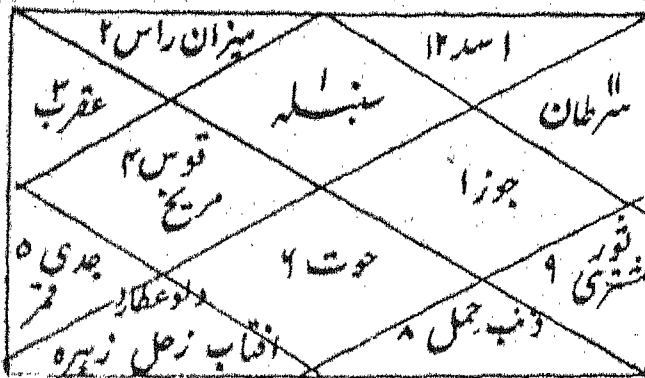 میزان راس ۲
اسد ۱۲
عقرب ۳
۱
سنبلہ
سرطان ۱۱
قوس ۴
مریخ
جوزا ۱
جدی ۵
قمر
حوت ۶
ثور ۹
مشتری
دلو عطارد
آفتاب زحل زہرہ
ذنب حمل ۸